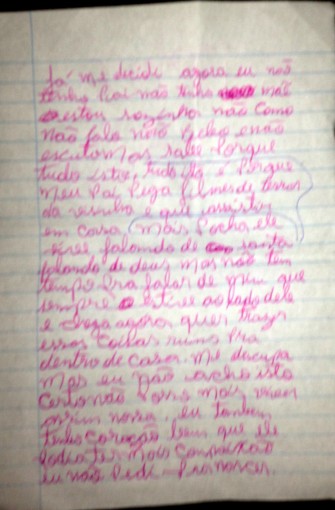 Já me decidi agora eu não
tenho Pai não tenho mãe
estou sozinho não como
não falo não Acho e não
escuto mas sabe Porque
tudo isto, tudo é Porque
meu Pai Pega filmes de terror
da e que assistir
em casa, mais Pocha ele
vive falando de santa
falando de deus mas não tem
tempo Pra falar de mim que
sempre estive ao lado dele
e chega agora quer trazer
essas coisas ruins Pra
dentro de casa. Me discupa
mas eu não acho isto
certo não Posso mais viver
assim nossa. eu tambem
tenho coração bem que ele
Podia ter mais Compaixão
eu não Pedi Pra nascer.